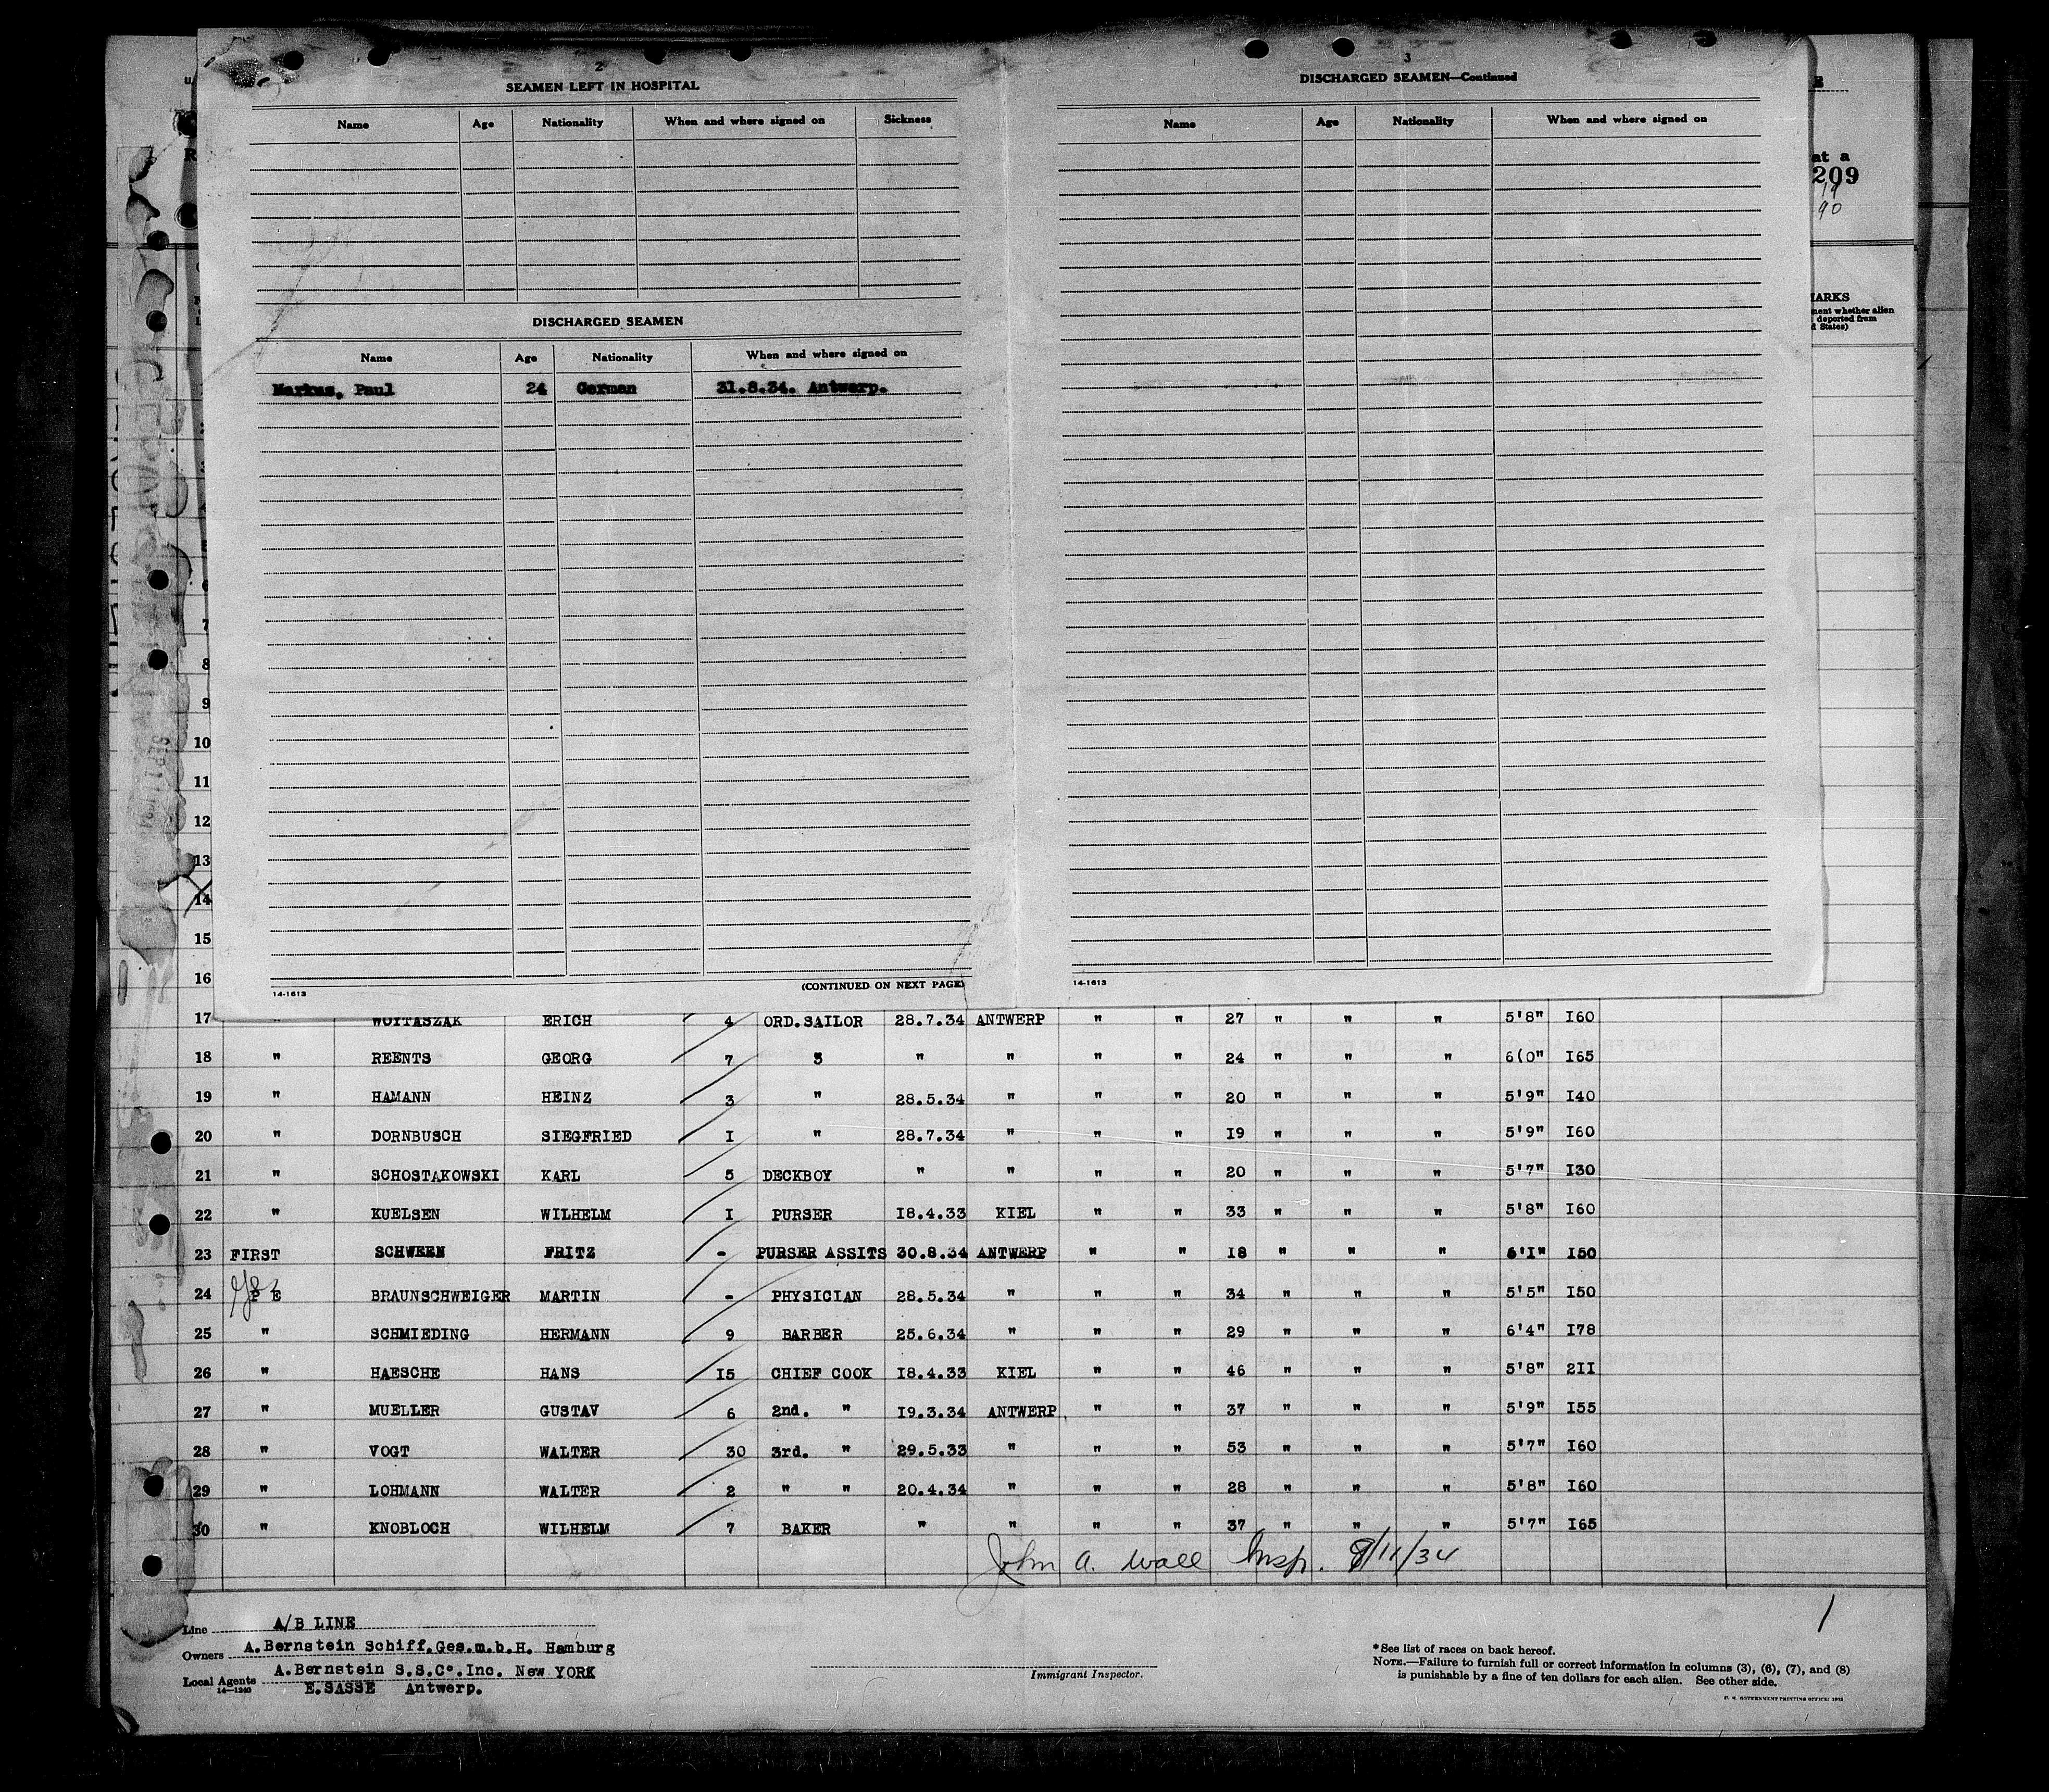 2
SEAMEN LEFT IN HOSPITAL
Name Age Nationality When and where signed on Sickness
DISCHARGED SEAMEN
Name Age Nationality When and where signed on
Markus, Paul 24 German 31.8.34. Antwerp.
14-1613 (CONTINUED ON NEXT PAGE)
3
DISCHARGED SEAMEN—Continued
Name Age Nationality When and where signed on
14-1613
at a
209
19
90
ARKS
ment whether alien
deported from
d States)
7
8
9
10
11
12
13
14
15
16
17 " WOITASZAK ERICH 4 ORD.SAILOR 28.7.34 ANTWERP " " 27 " " " 5'8" I60
18 " REENTS GEORG 7 3 " " " " 24 " " " 6(0" I65
19 " HAMANN HEINZ 3 " 28.5.34 " " " 20 " " " 5'9" I40
20 " DORNBUSCH SIEGFRIED I " 28.7.34 " " " I9 " " " 5'9" I60
21 " SCHOSTAKOWSKI KARL 5 DECKBOY " " " " 20 " " " 5'7" I30
22 " KUELSEN WILHELM I PURSER I8.4.33 KIEL " " 33 " " " 5'8" I60
23 FIRST SCHWEEN FRITZ - PURSER ASSITS 30.8.34 ANTWERP " " I8 " " " 6'I" I50
24 Yes P E BRAUNSCHWEIGER MARTIN - PHYSICIAN 28.5.34 " " " 34 " " " 5'5" I50
25 " SCHMIEDING HERMANN 9 BARBER 25.6.34 " " " 29 " " " 6'4" I78
26 " HAESCHE HANS I5 CHIEF COOK I8.4.33 KIEL " " 46 " " " 5'8" 2II
27 " MUELLER GUSTAV 6 2nd. " I9.3.34 ANTWERP " " 37 " " " 5'9" I55
28 " VOGT WALTER 30 3rd. " 29.5.33 " " " 53 " " " 5'7" I60
29 " LOHMANN WALTER 2 " " 20.4.34 " " " 28 " " " 5'8" I60
30 " KNOBLOCH WILHELM 7 BAKER " " " " 37 " " " 5'7" I65
John A. Wall Insp. 9/11/34
1
Line A/B LINE
Owners A.Bernstein Schiff.Ges.m.b.H. Hamburg
Local Agents A.Bernstein S.S.Co.Inc. New YORK
14-1240 E.SASSE Antwerp.
Immigrant Inspector.
*See list of races on back hereof.
NOTE.—Failure to furnish full or correct information in columns (3), (6), (7), and (8)
is punishable by a fine of ten dollars for each alien. See other side.
U. S. GOVERNMENT PRINTING OFFICE: